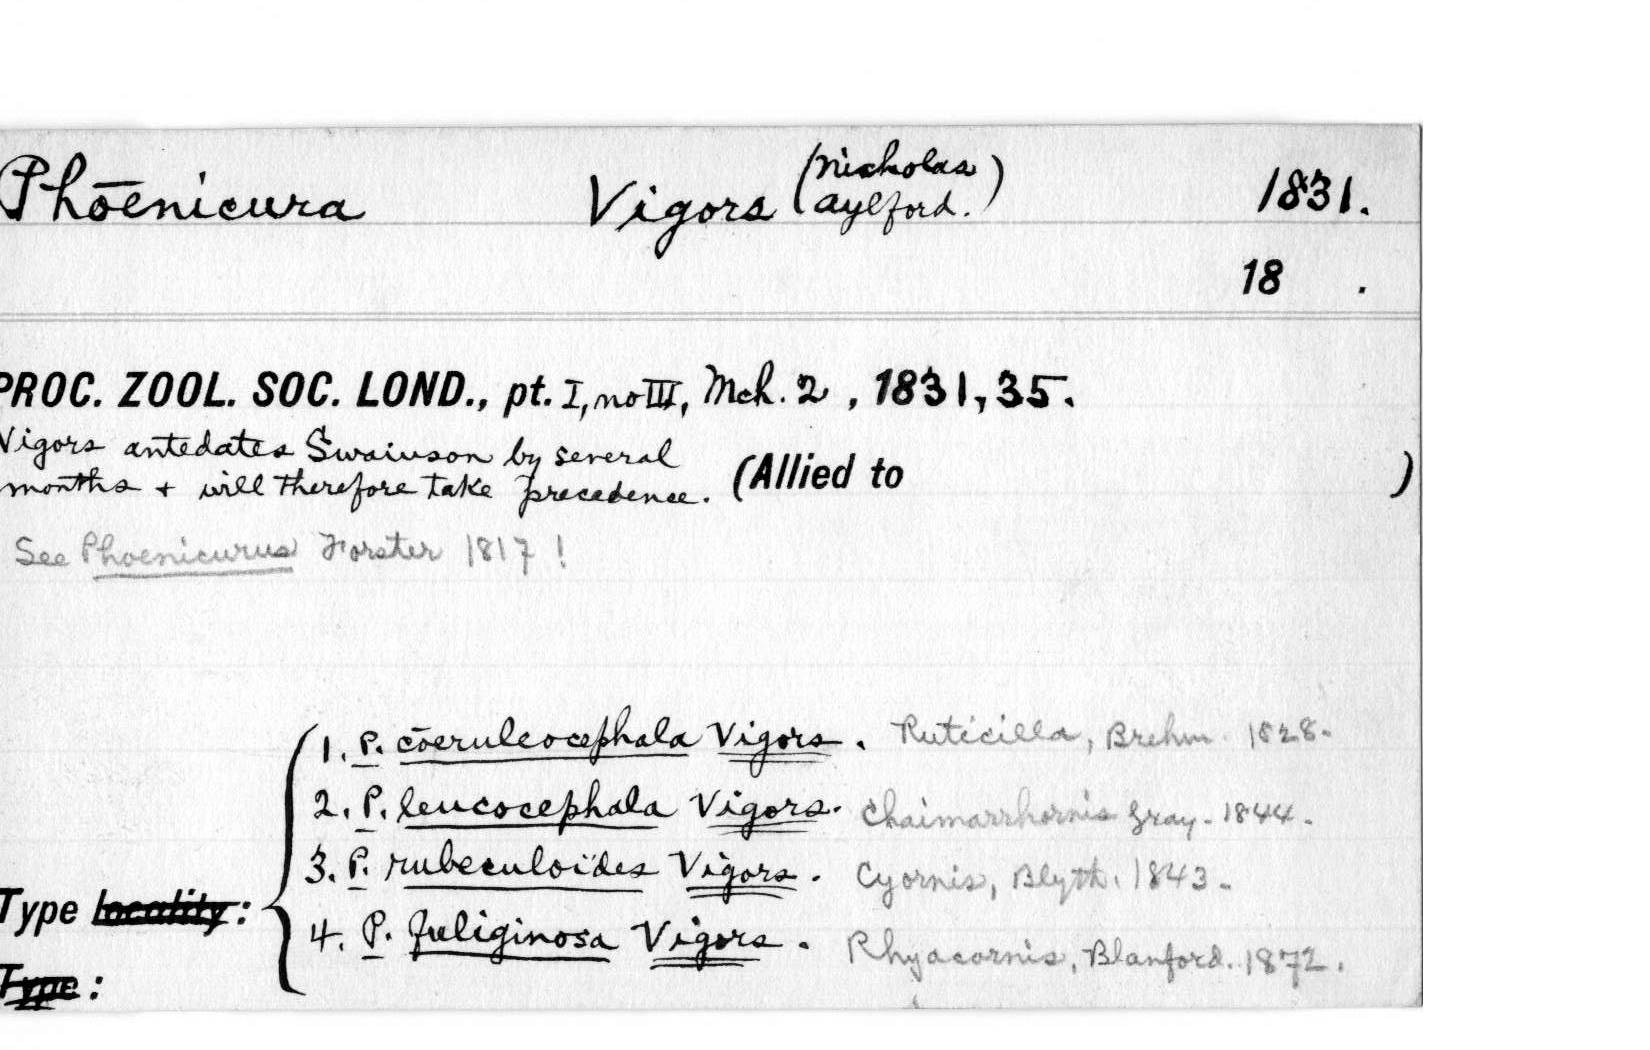 Phōenicura Vigors (Nicholas Aylford.) 1831.
18 .
PROC. ZOOL. SOC. LOND., pt. I, no III, Mch. 2, 1831, 35.
Vigors antedates Swainson by several
months + will therefore take precedence. (Allied to )
See Phoenicurus Forster 1817!
1. P. cōeruleocephala Vigors. Ruticilla, Brehm. 1828.
2. P. leucocephala Vigors. Chaimarrhornis Gray. 1844.
3. P. rubeculoïdes Vigors. Cyornis, Blyth. 1843.
Type locality:
4. P. fuliginosa Vigors. Rhyacornis, Blanford. 1872.
Type: